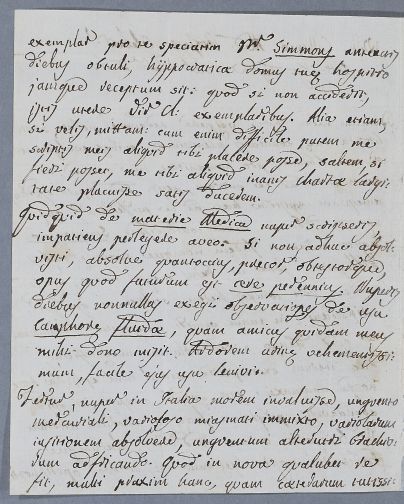 exemplar pro te speciatim Mr Simmons anteactis
diebus obtuli, hyppocratica domus tuę hospitio
jamque receptum sit: quod si non accidisset,
istis utere Vir Cl: exemplaribus. Alia etiam,
si velis, mittam: cum enim difficile putem me
scriptis meis aliquid tibi placere posse, saltem si
fieri posset, me tibi aliquid inanis chartæ largi-
tate placuisse satis ducerem.
Quidquid de materie Medica nuper scripsisti,
impatiens perlegere aveo. si non adhuc absol-
visti absolve quantocius, precor, obtestorque,
opus quod futurum est ære perennius. Superis
diebus nonnullas exegi observationes de usu
camphoræ fluidæ, quam amicus quidam meus
mihi dono misit. Ardorem urinę vehementissi-
mum, facile ejus usu lenivit.
Fertur, nuper in Italia morem invaluisse, unguento
mercuriali, varioloso miasmati immixto, variolarum
insitionem absolvere, unguentum alterutri
adfricando. Quod in nova qualubet re
fit, multi praxim hanc, quam cæterarum tutissi-